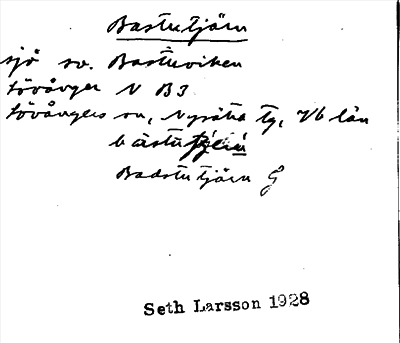 Bastutjärn
sjö sv. Bastuviken
Lövånger N B3
Lövångers sn, Nysätra tg, Vb län
Badstutjärn G
Seth Larsson 1928